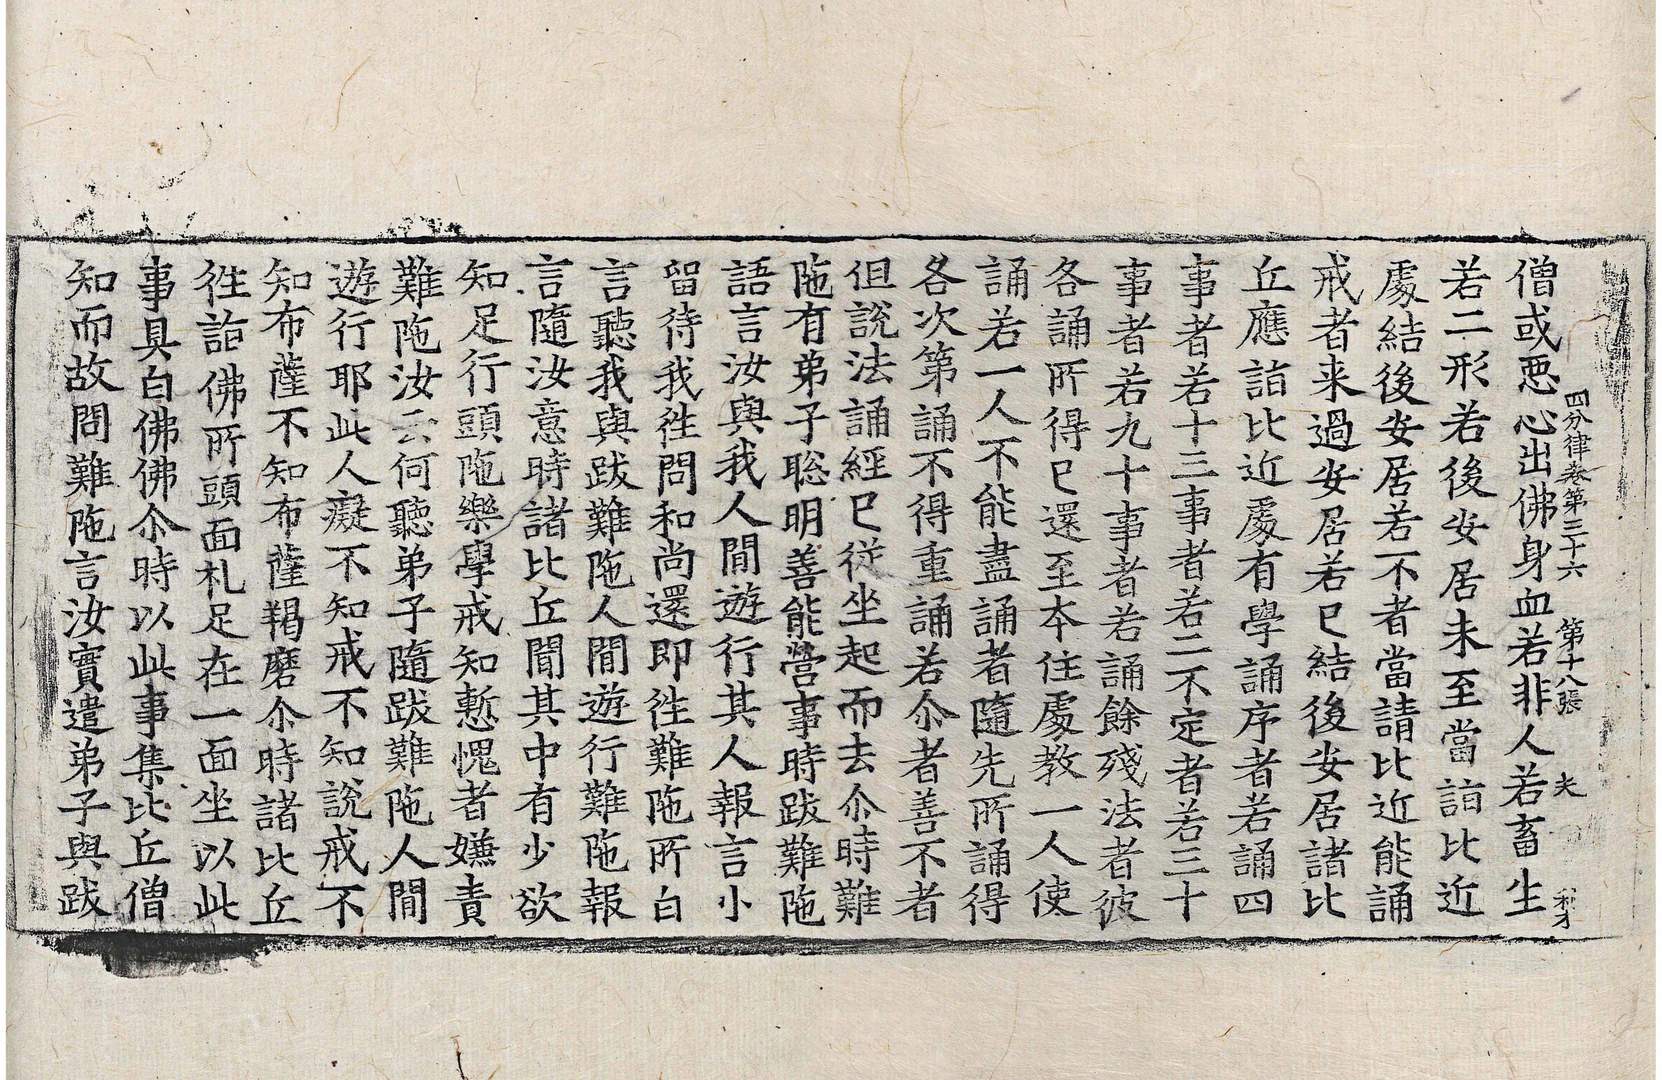 四分律卷第三十六 第十八張 夫
僧或惡心出佛身血若非人若畜生
若二形若後安居未至當詣比近
處結後安居若不者當請比近能誦
戒者来過安居若已結後安居諸比
丘應詣比近處有學誦序者若誦四
事者若十三事者若二不定者若三十
事者若九十事者若誦餘殘法者彼
各誦所得已還至本住處教一人使
誦若一人不能盡誦者隨先所誦得
各次第誦不得重誦若尒者善不者
但說法誦經已從坐起而去尒時難
陁有弟子聡明善能營事時跋難陁
語言汝與我人間遊行其人報言小
留待我徃問和尚還即徃難陁所白
言聽我與跋難陁人間遊行難陁報
言隨汝意時諸比丘聞其中有少欲
知足行頭陁樂學戒知慙愧者嫌責
難陁汝云何聽弟子隨跋難陁人間
遊行耶此人癡不知戒不知說戒不
知布薩不知布薩羯磨尒時諸比丘
徃詣佛所頭面札足在一面坐以此
事具白佛佛尒時以此事集比丘僧
知而故問難陁言汝實遣弟子與跋